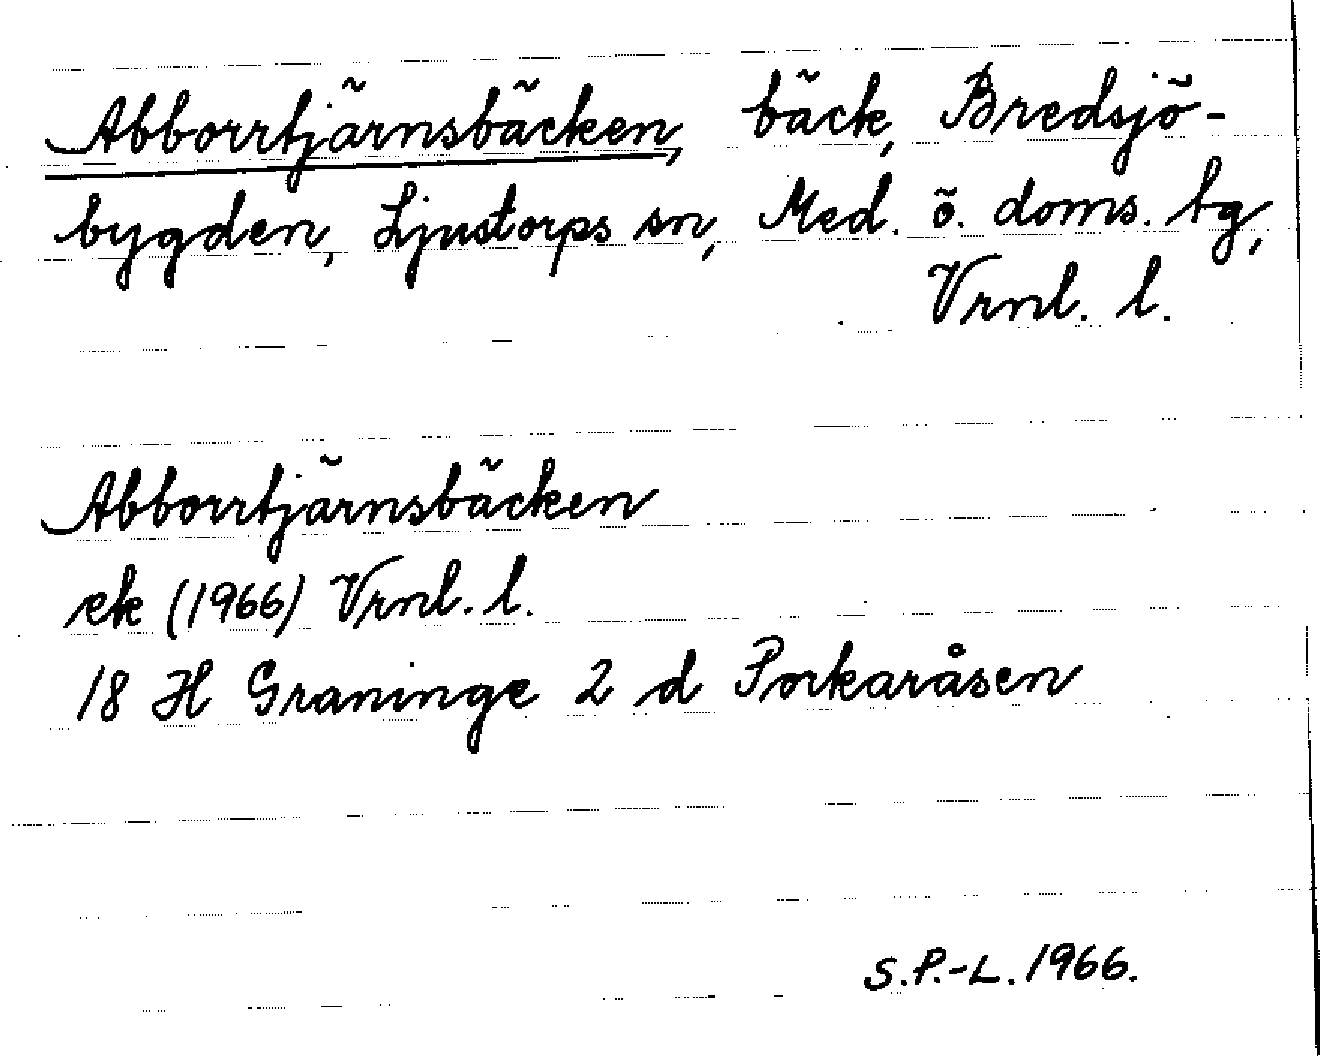 Abborrtjärnsbäcken, bäck, Bredsjö-
bygden, Ljustorps sn, Med. ö. doms. tg,
Vrnl. l.
Abborrtjärnsbäcken
ek (1966) Vrnl. l.
18 H Graninge 2 d Porkaråsen
S.P.-L. 1966.